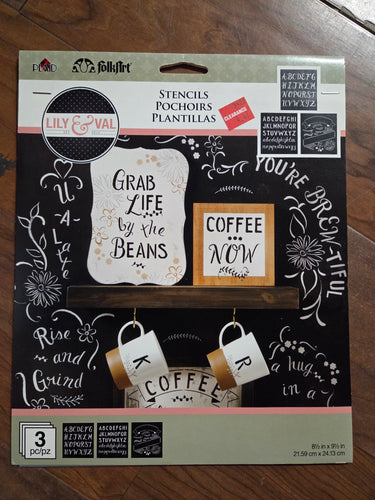 PLAID
folkArt
STENCILS
POCHOIRS
PLANTILLAS
CLEARANCE
LILY & VAL
ABCDEFG
HIJKLM
NOPQRST
UVWXYZ
GRAB
LIFE
by the
BEANS
COFFEE
NOW
YOU'RE BREW-TIFUL
U-A-Latte
Rise
and
Grind
K
R
a hug
in a
COFFEE
3
pc/pz
8½ in x 9½ in
21.59 cm x 24.13 cm